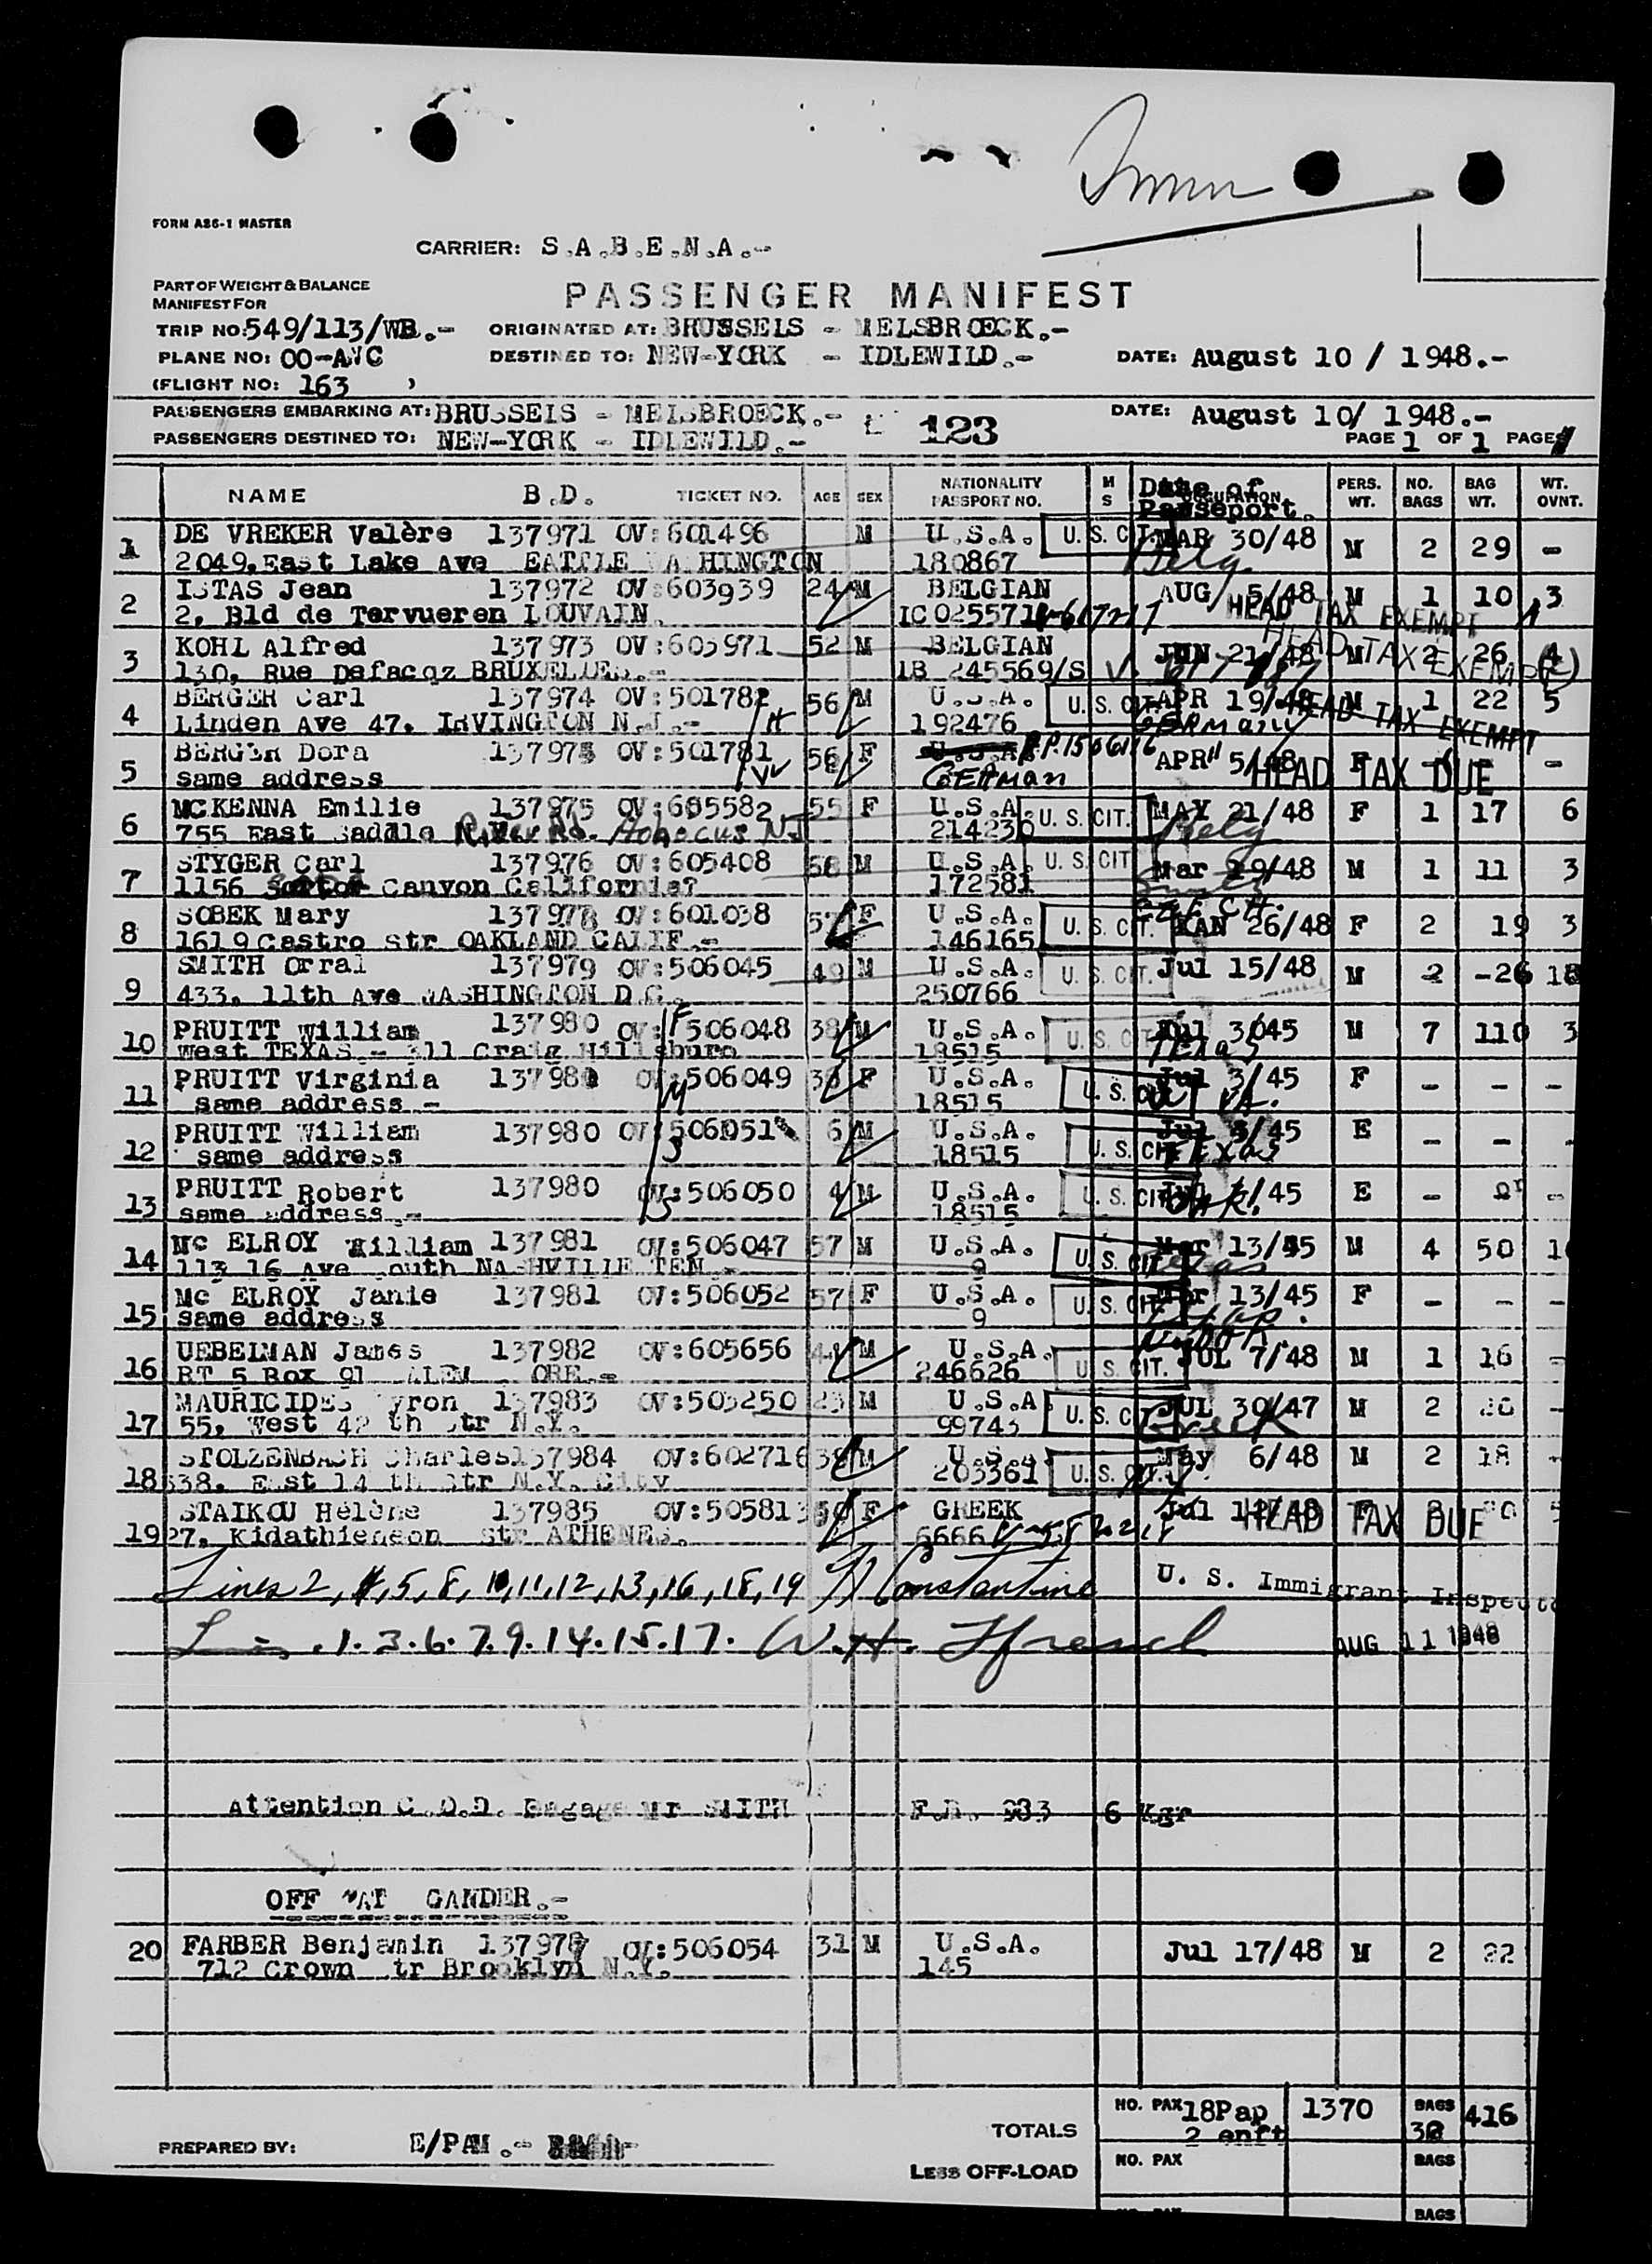 FORM A86-1 MASTER
CARRIER: S.A.B.E.N.A.-
PART OF WEIGHT & BALANCE
MANIFEST FOR
PASSENGER MANIFEST
TRIP NO: 549/113/WB.- ORIGINATED AT: BRUSSELS - MELSBROECK.-
PLANE NO: OO-AWC DESTINED TO: NEW-YORK - IDLEWILD.- DATE: August 10 / 1948.-
(FLIGHT NO: 163 )
PASSENGERS EMBARKING AT: BRUSSELS - MELSBROECK.- 123 DATE: August 10/ 1948.-
PASSENGERS DESTINED TO: NEW-YORK - IDLEWILD.- PAGE 1 OF 1 PAGES
NAME B.D. TICKET NO. AGE SEX NATIONALITY PASSPORT NO. M S Date of Passeport. PERS. WT. NO. BAGS BAG WT. WT. OVNT.
1 DE VREKER Valère 137971 OV:601496 M U.S.A. U. S. CIT. MAR 30/48 M 2 29 -
2049, East Lake Ave EATTLE WA HINGTON 180867 Belg
2 ISTAS Jean 137972 OV:603939 24 M BELGIAN AUG 5/48 M 1 10 3
2, Bld de Tervueren LOUVAIN. IC 025571 HEAD TAX EXEMPT
3 KOHL Alfred 137973 OV:605971 52 M BELGIAN JUN 21/48 M 2 26
130, Rue Defacqz BRUXELLES.- 1B 245569/S HEAD TAX EXEMPT
4 BERGER Carl 137974 OV:501782 56 M U.S.A. U. S. CIT. APR 19/48 M 1 22 5
Linden Ave 47, IRVINGTON N.J.- H 192476 GERMANY HEAD TAX EXEMPT
5 BERGER Dora 137975 OV:501781 56 F U.S.A. APR 5/48 F - - -
same address W GERMAN HEAD TAX DUE
6 MCKENNA Emilie 137975 OV:605582 55 F U.S.A. U. S. CIT. MAY 21/48 F 1 17 6
755 East Saddle River Rd. Hohocus NJ 214236 Belg
7 STYGER Carl 137976 OV:605408 58 M U.S.A. U. S. CIT Mar 19/48 M 1 11 3
1156 Canyon California? 172581
8 SOBEK Mary 137978 OV:601038 57 F U.S.A. U. S. CIT. JAN 26/48 F 2 19 3
1619 Castro str OAKLAND CALIF.- 146165
9 SMITH Orral 137979 OV:506045 49 M U.S.A. U. S. CIT. Jul 15/48 M 2 -26
433, 11th Ave WASHINGTON D.C. 250766
10 PRUITT William 137980 OV:506048 38 M U.S.A. U. S. CIT Jul 3/45 M 7 110 3
West TEXAS - 311 Craig Hillsburo 18515 Texas
11 PRUITT Virginia 137980 OV:506049 F U.S.A. U. S. CIT Jul 3/45 F - - -
same address - 18515
12 PRUITT William 137980 OV:506051 6 M U.S.A. U. S. CIT Jul 3/45 E - - -
same address 18515 TEXAS
13 PRUITT Robert 137980 OV:506050 4 M U.S.A. U. S. CIT Jul 3/45 E - -
same address.- 18515
14 Mc ELROY William 137981 OV:506047 57 M U.S.A. U. S. CIT. Mar 13/45 M 4 50
113 16 Ave South NASHVILLE TEN.- 9 Texas
15 Mc ELROY Janie 137981 OV:506052 57 F U.S.A. U. S. CIT. Mar 13/45 F - - -
same address 9
16 UEBELMAN James 137982 OV:605656 M U.S.A. U. S. CIT. JUL 7/48 M 1 16 -
RT 5 Box 91 ALEM ORE.- 246626
17 MAURICIDES yron 137983 OV:503250 23 M U.S.A U. S. CIT JUL 30/47 M 2 -
55, West 42 th str N.Y. 99743 Greek
18 STOLZENBACH Charles 137984 OV:602716 M U.S.A. U. S. CIT. May 6/48 M 2 18 -
538, East 14 th Str N.Y. City 203361 N.Y.
19 STAIKOU Hélène 137985 OV:50581 F GREEK Jul F
27, Kidathieneon str ATHENES. 6666 HEAD TAX DUE
Lines 2, 4, 5, 8, 10, 11, 12, 13, 16, 18, 19 Constantine U. S. Immigrant Inspecto
1. 3. 6. 7. 9. 14. 15. 17. W. H. Ffrench AUG 11 1948
Attention C.D.D. Bagage Mr SMITH 6 Kgr
OFF AT GANDER.-
20 FARBER Benjamin 137977 OV:506054 31 M U.S.A. Jul 17/48 M 2 22
712 Crown str Brooklyn N.Y. 145
TOTALS NO. PAX 18Pap 2 enft 1370 BAGS 416
PREPARED BY: E/PAM.-
LESS OFF-LOAD NO. PAX BAGS
NO. PAX BAGS